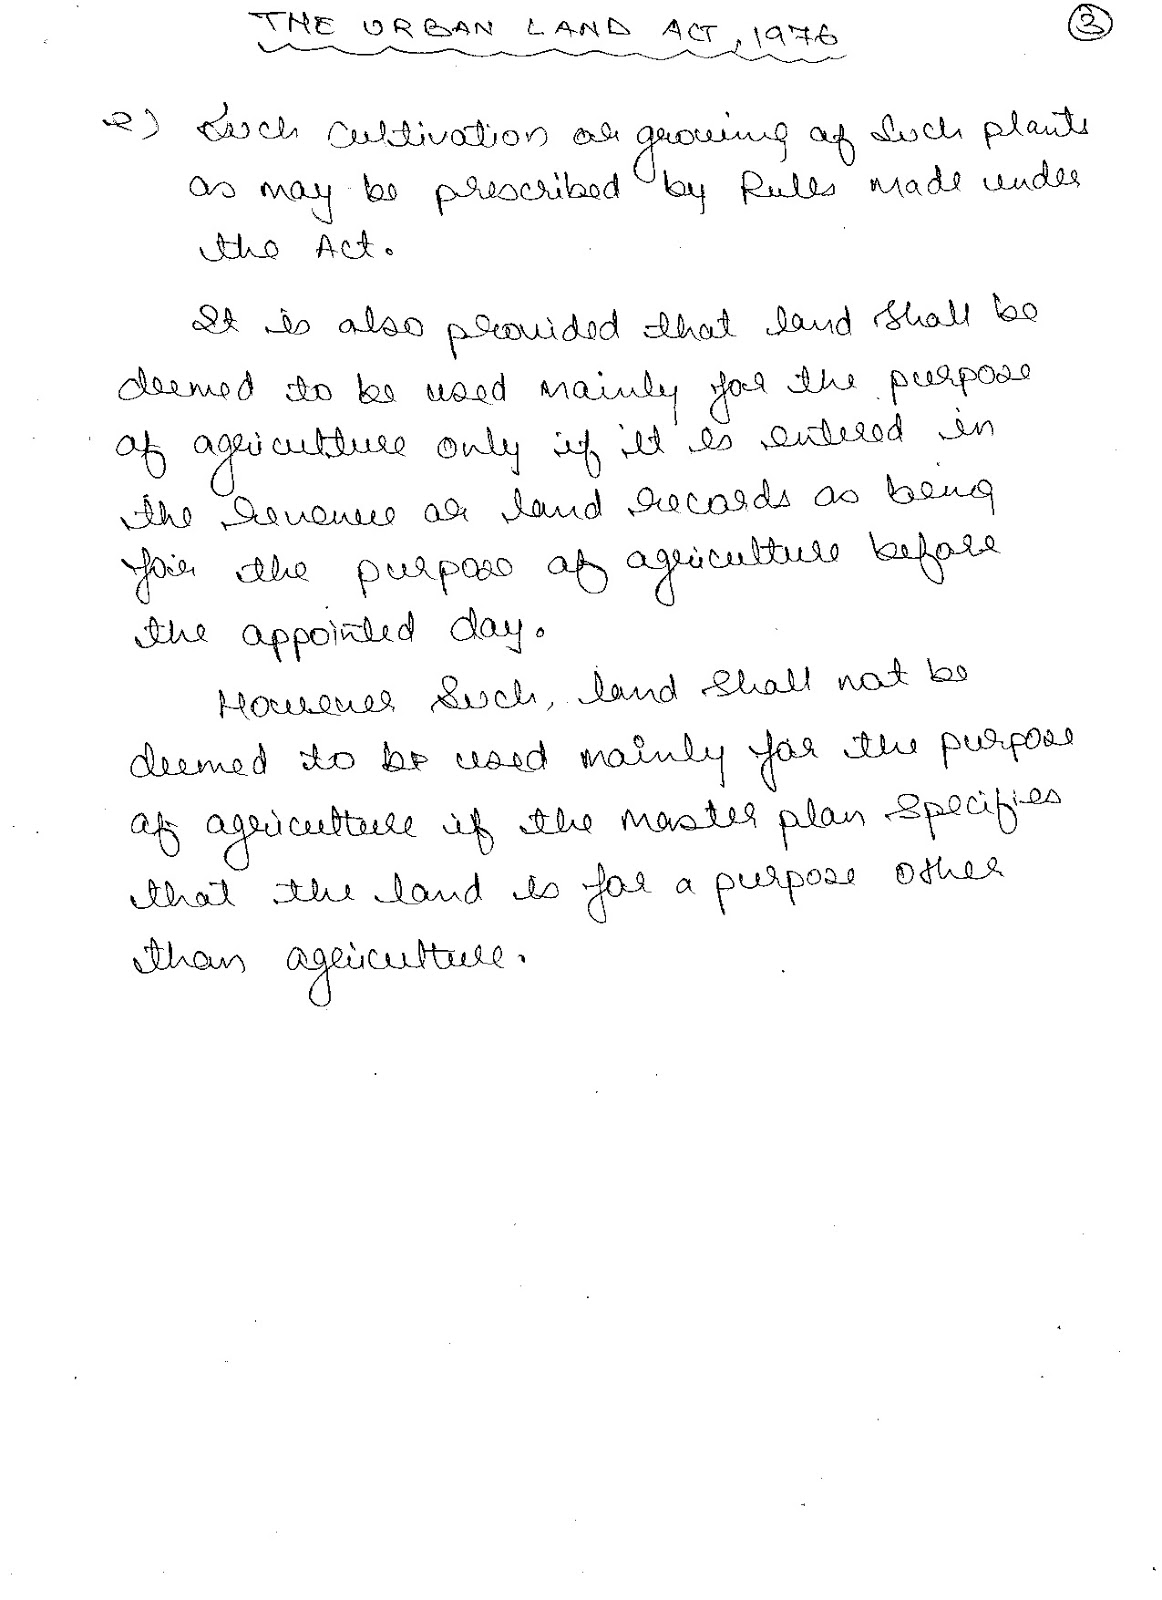 THE URBAN LAND ACT, 1976
3
e) Such cultivation or growing of such plants
as may be prescribed by Rules made under
the Act.
It is also provided that land shall be
deemed to be used mainly for the purpose
of agriculture only if it is entered in
the revenue or land records as being
for the purpose of agriculture before
the appointed day.
However Such, land shall not be
deemed to be used mainly for the purpose
of agriculture if the master plan specifies
that the land is for a purpose other
than agriculture.